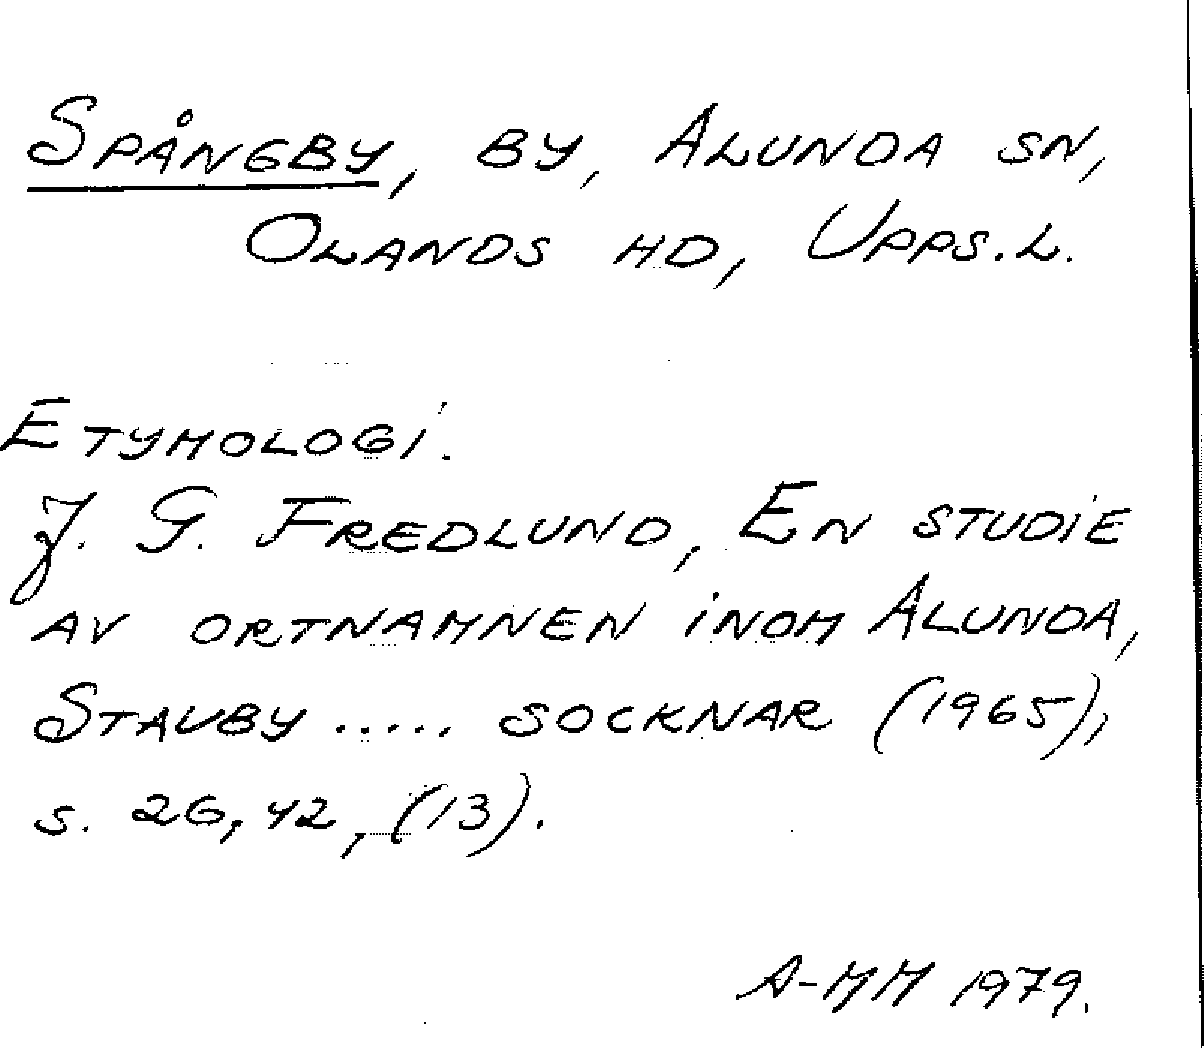 Spångby, by, Alunda sn,
Olands hd, Upps.l.
Etymologi.
J. G. Fredlund, En studie
av ortnamnen inom Alunda,
Stauby ..... socknar (1965),
s. 26, 42, (13).
A-MM 1979.